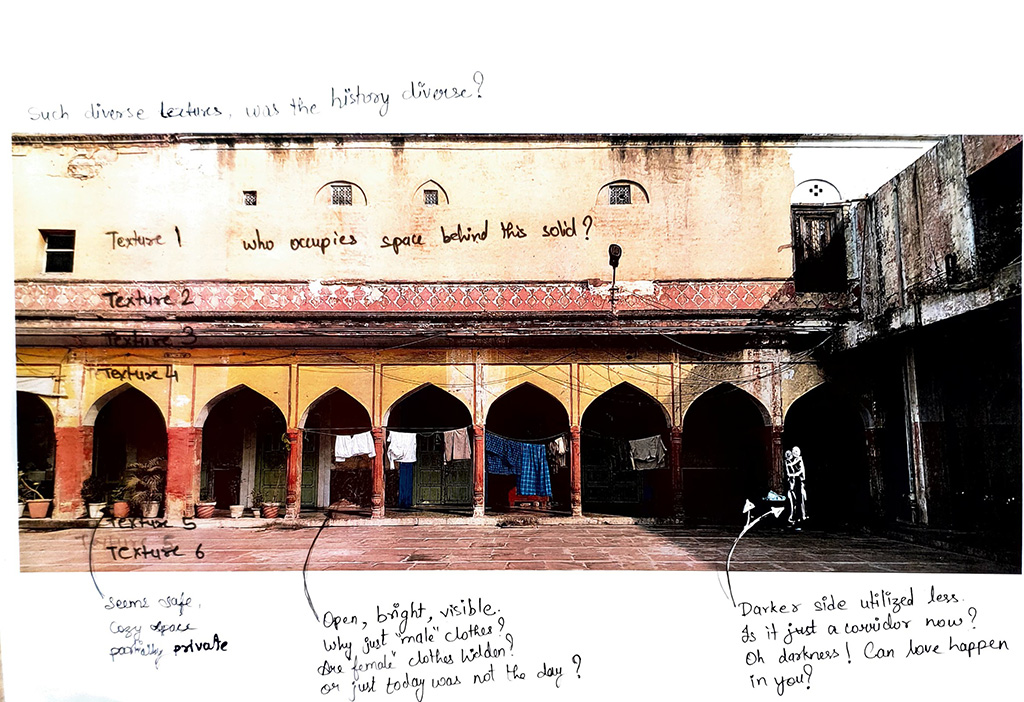 Such diverse textures, was the history diverse?
Texture 1
who occupies space behind this solid?
Texture 2
Texture 3
Texture 4
Texture 5
Texture 5
Texture 6
Seems safe,
Cozy space
partially private
Open, bright, visible.
Why just "male" clothes?
Are "female" clothes hidden?
or just today was not the day?
Darker side utilized less.
Is it just a corridor now?
Oh darkness! Can love happen
in you?